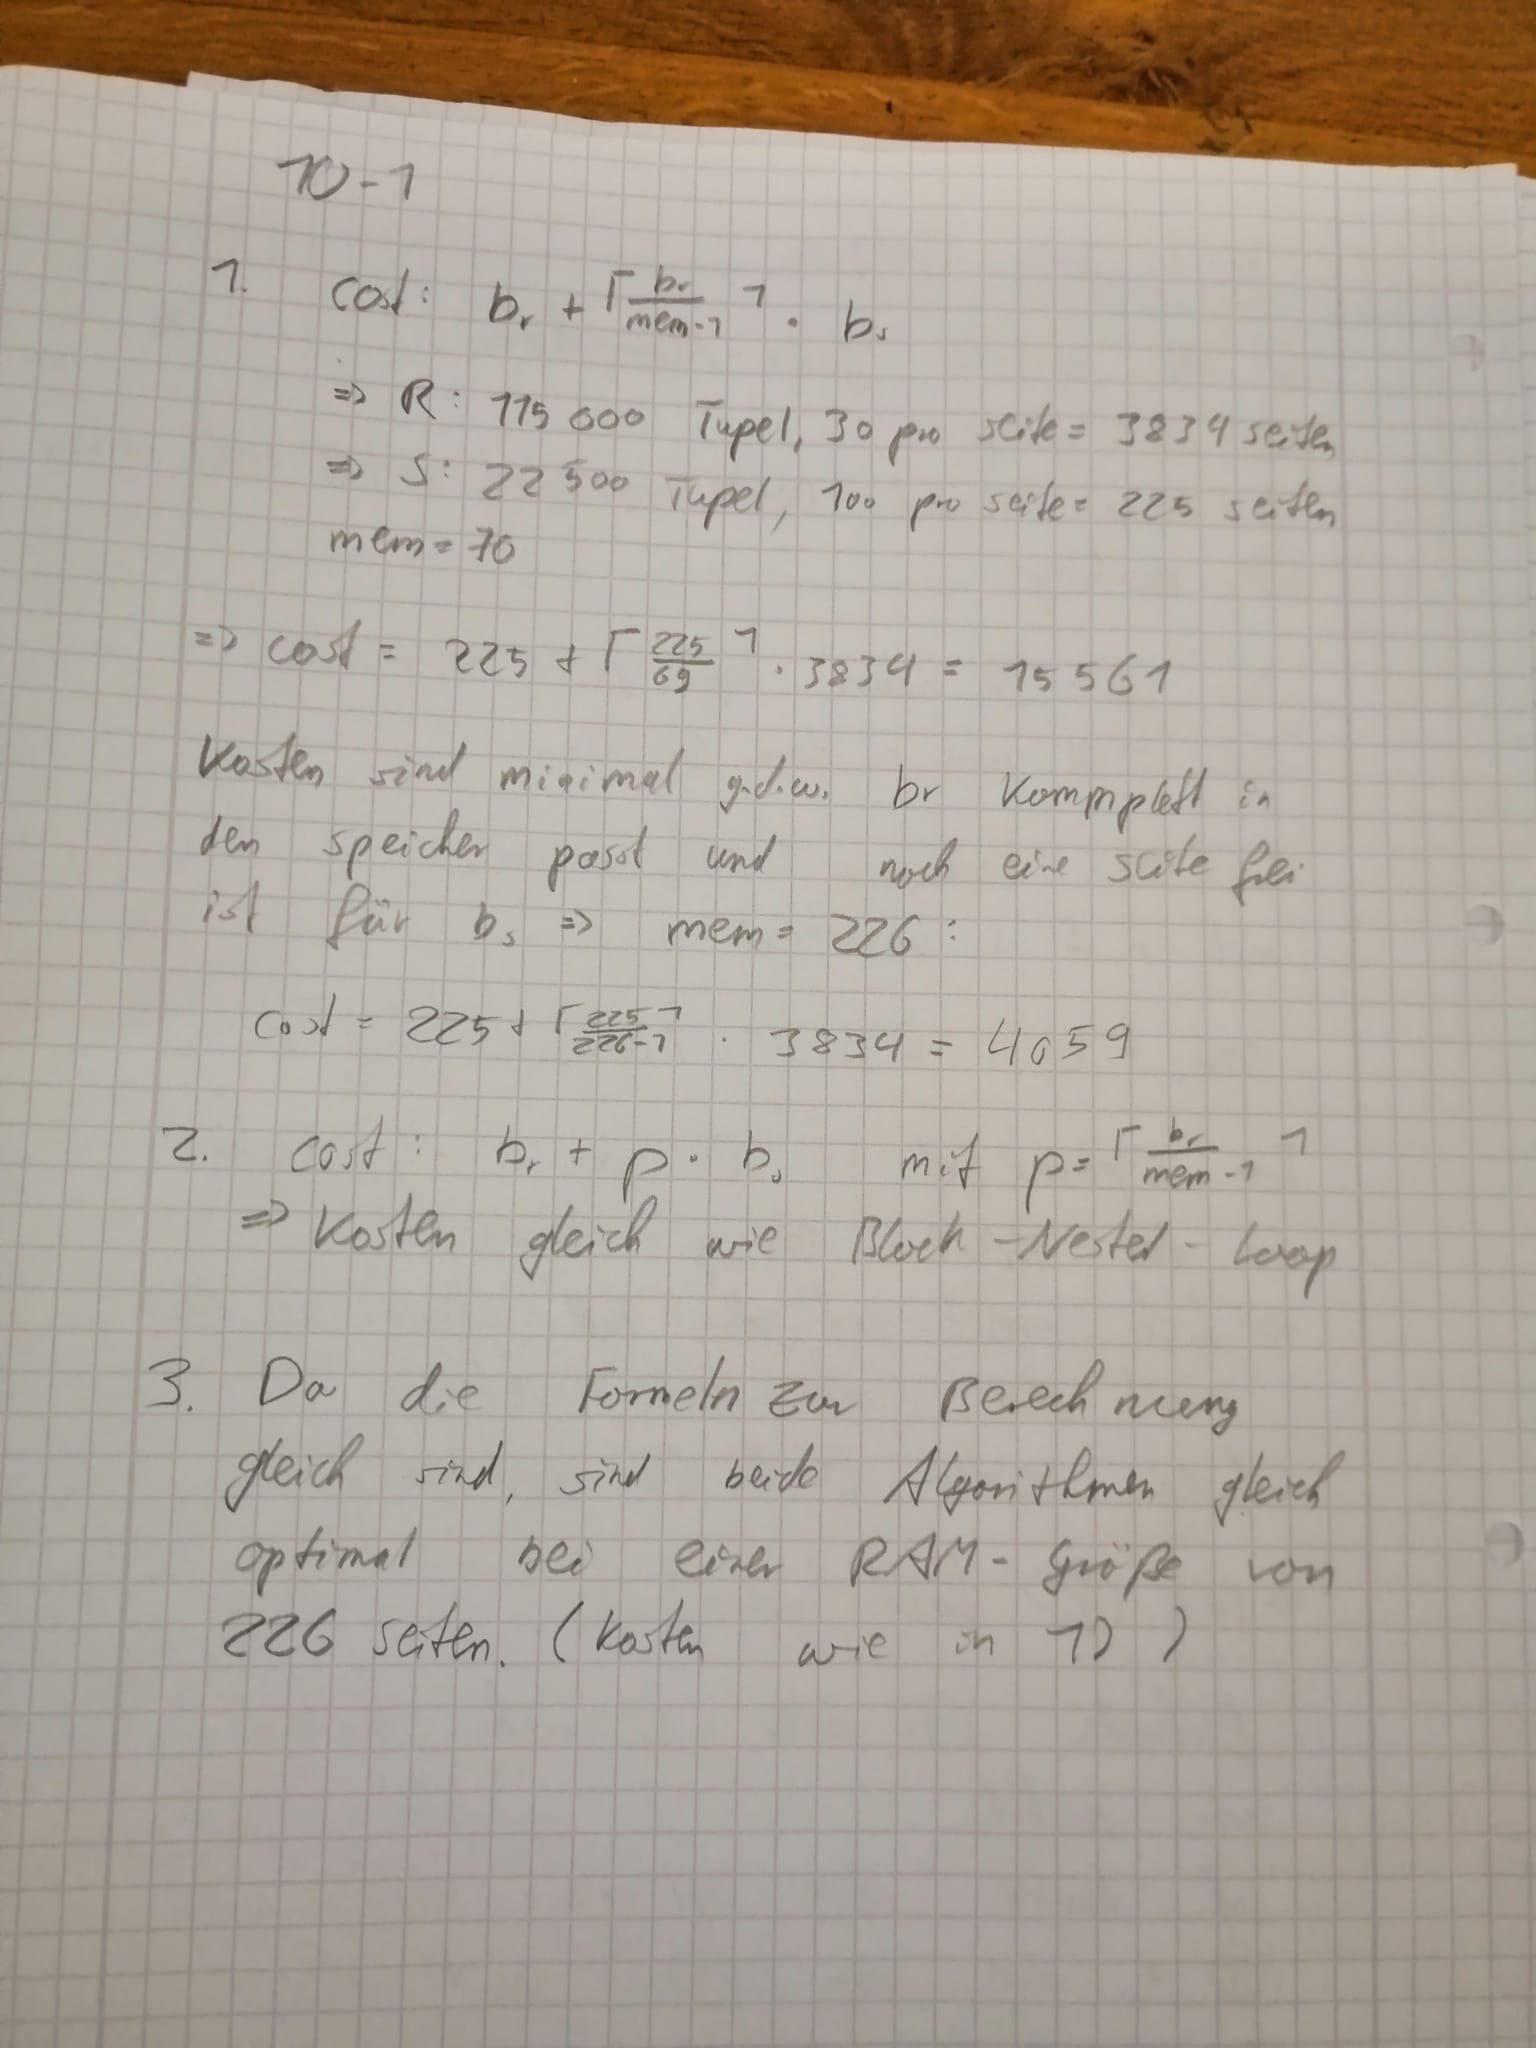 10-1
1. cost: br + ⌈br/mem-1⌉ · bs
=> R: 115 000 Tupel, 30 pro seite = 3834 seiten
=> S: 22 500 Tupel, 100 pro seite = 225 seiten
mem = 70
=> cost = 225 + ⌈225/69⌉ · 3834 = 15 561
Kosten sind minimal g.d.w. br Kommplett in
den speicher passt und noch eine seite frei
ist für bs => mem = 226 :
cost = 225 + ⌈225/226-1⌉ · 3834 = 4059
2. cost: br + p · bs mit p = ⌈br/mem-1⌉
=> Kosten gleich wie Block-Nested-Loop
3. Da die Formeln zur Berechnung
gleich sind, sind beide Algorithmen gleich
optimal bei einer RAM-Größe von
226 seiten. (Kosten wie in 1))